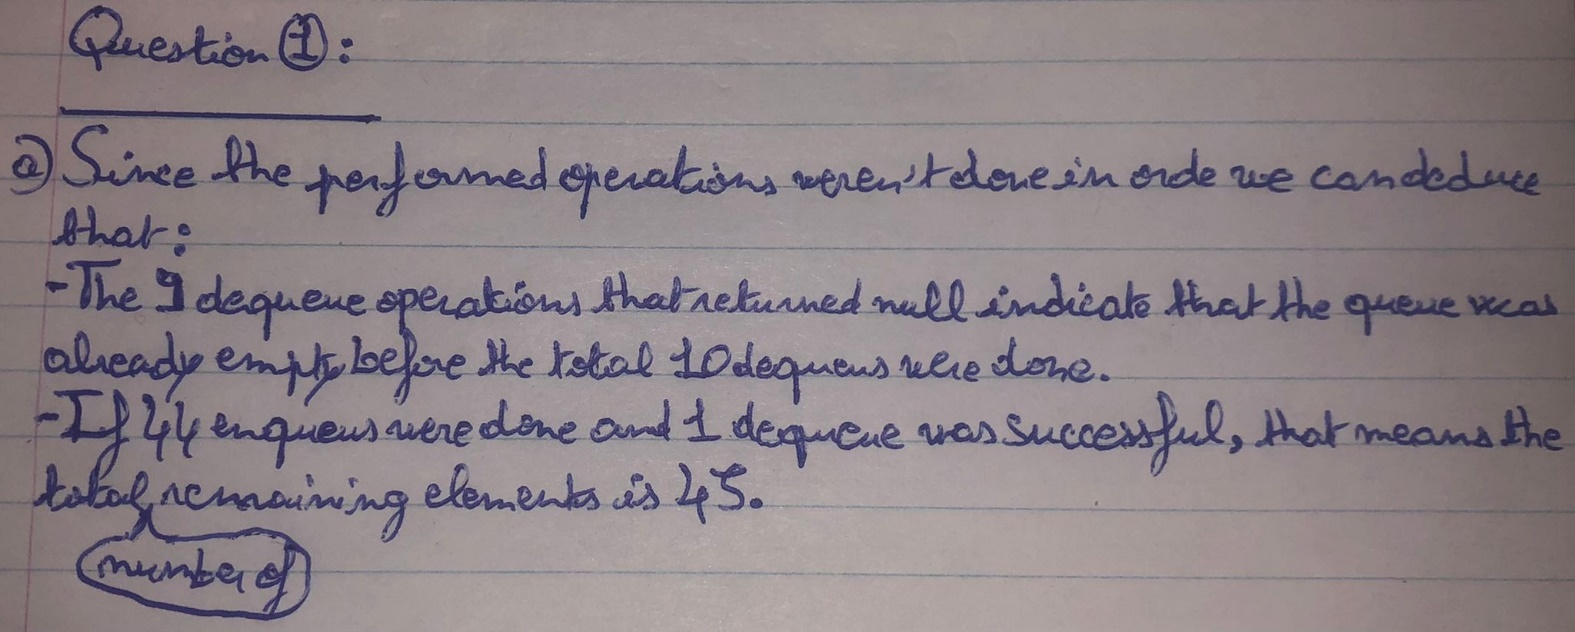 Question ①:
a) Since the performed operations weren't done in orde we can deduce
that:
-The 9 dequeue operations that returned null indicate that the queue was
already empty before the total 10 dequeus were done.
-If 44 enqueus were done and 1 dequeue was successful, that means the
total remaining elements is 45.
number of